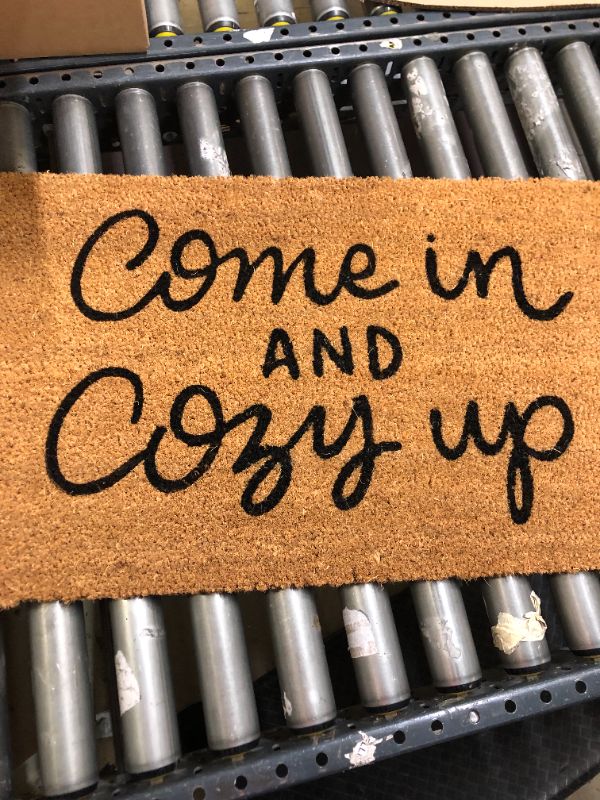 Come in
AND
Cozy up